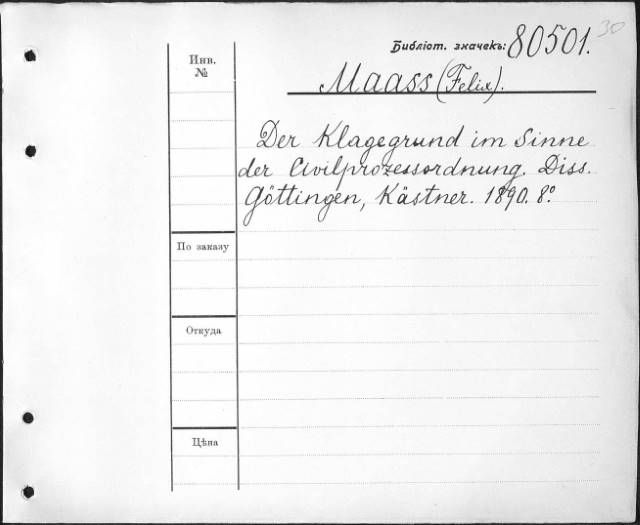 30
Библіот. значекъ: 80501.
Инв.
№
Maass (Felix).
Der Klagegrund im Sinne
der Civilprozessordnung. Diss.
Göttingen, Kästner. 1890. 8º.
По заказу
Откуда
Цѣна